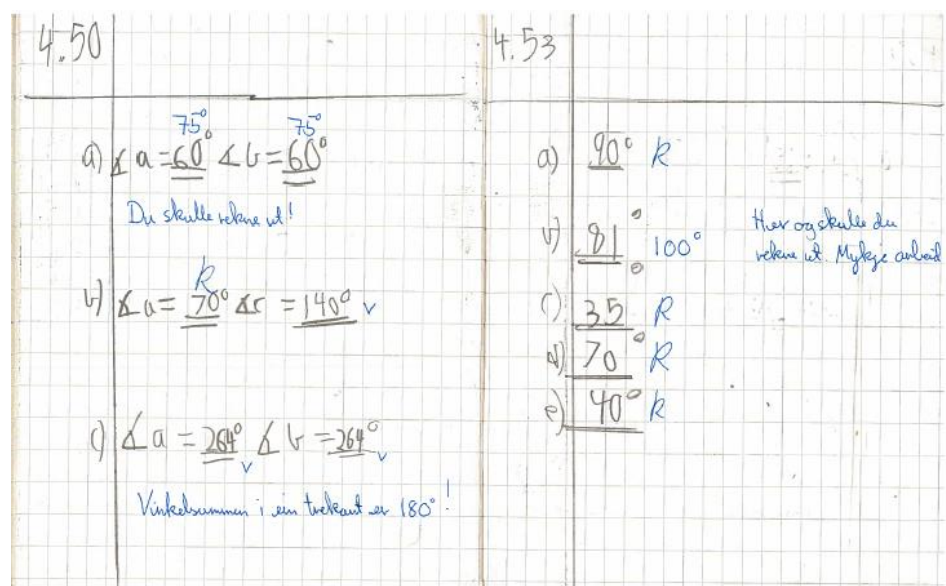 4.50
75° 75°
a) ∡ a = 60° ∡ b = 60°
Du skulle rekne ut!
R
b) ∡ a = 70° ∡ c = 140° v
c) ∡ a = 264° ∡ b = 264°
v v
Vinkelsummen i ein trekant er 180°!
4.53
a) 90° R
b) 81° 100°
Her og skulle du
rekne ut. Mykje arbeid
c) 35° R
d) 70° R
e) 40° R